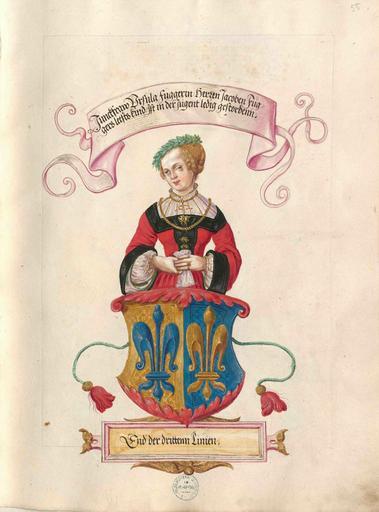 55
Junckfraw Ursula Fuggerin Herren Jacoben Fug-
gers leists kind Ist in der Jugent ledig gestorbenn.
End der drittenn Linien.